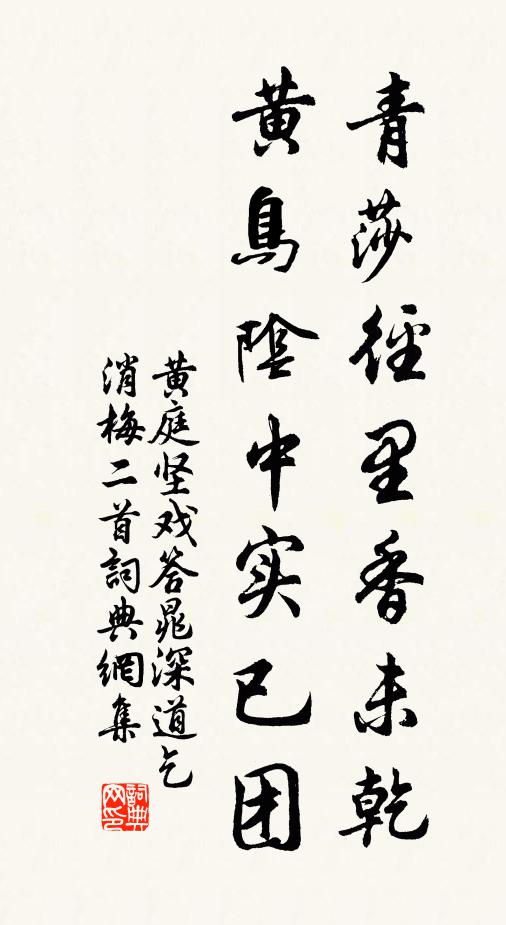 青莎徑里香未乾
黃鳥陰中实已团
黃庭坚戏答晁深道乞
消梅二首詞典網集
詞典
网印